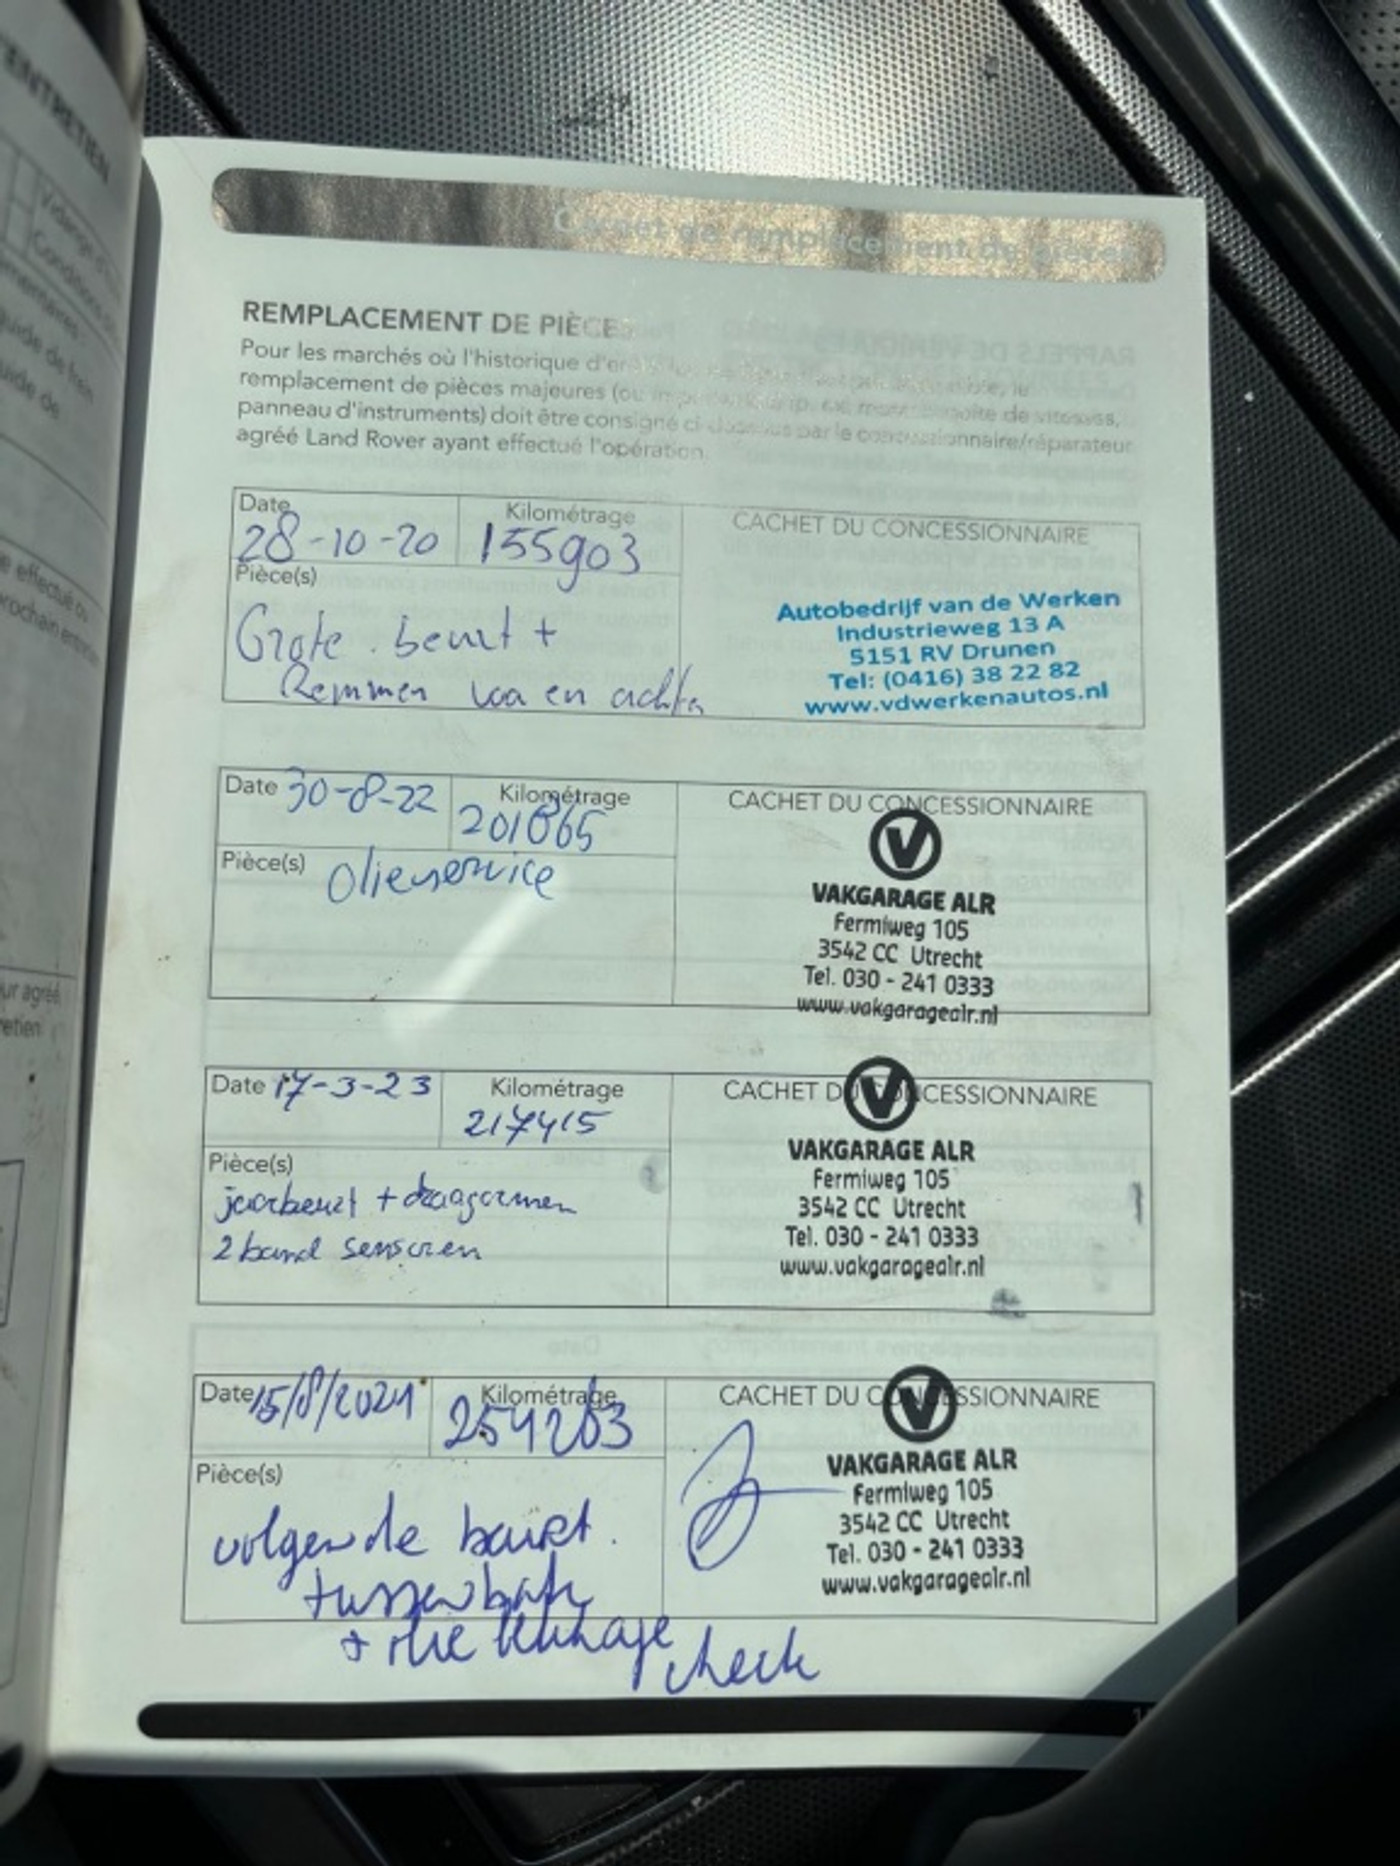 ENTRETIEN
Carnet de remplacement de pièces
REMPLACEMENT DE PIÈCES
Pour les marchés où l'historique
remplacement de pièces majeures (ou boîte de vitesses,
panneau d'instruments) doit être consigné ci-dessous par le concessionnaire/réparateur
agréé Land Rover ayant effectué l'opération.
Date
28-10-20
Kilométrage
155903
CACHET DU CONCESSIONNAIRE
Pièce(s)
Grote beurt +
Remmen voa en achter
Autobedrijf van de Werken
Industrieweg 13 A
5151 RV Drunen
Tel: (0416) 38 22 82
www.vdwerkenautos.nl
Date 30-8-22
Kilométrage
201865
CACHET DU CONCESSIONNAIRE
Pièce(s) Olieservice
VAKGARAGE ALR
Fermiweg 105
3542 CC Utrecht
Tel. 030 - 241 0333
www.vakgaragealr.nl
Date 17-3-23
Kilométrage
217415
CACHET DU CONCESSIONNAIRE
Pièce(s)
jaarbeurt + draagarmen
2 band sensoren
VAKGARAGE ALR
Fermiweg 105
3542 CC Utrecht
Tel. 030 - 241 0333
www.vakgaragealr.nl
Date 15/8/2024
Kilométrage
254263
CACHET DU CONCESSIONNAIRE
Pièce(s)
volgende beurt.
tussenbak
+ olie lekkage
check
VAKGARAGE ALR
Fermiweg 105
3542 CC Utrecht
Tel. 030 - 241 0333
www.vakgaragealr.nl